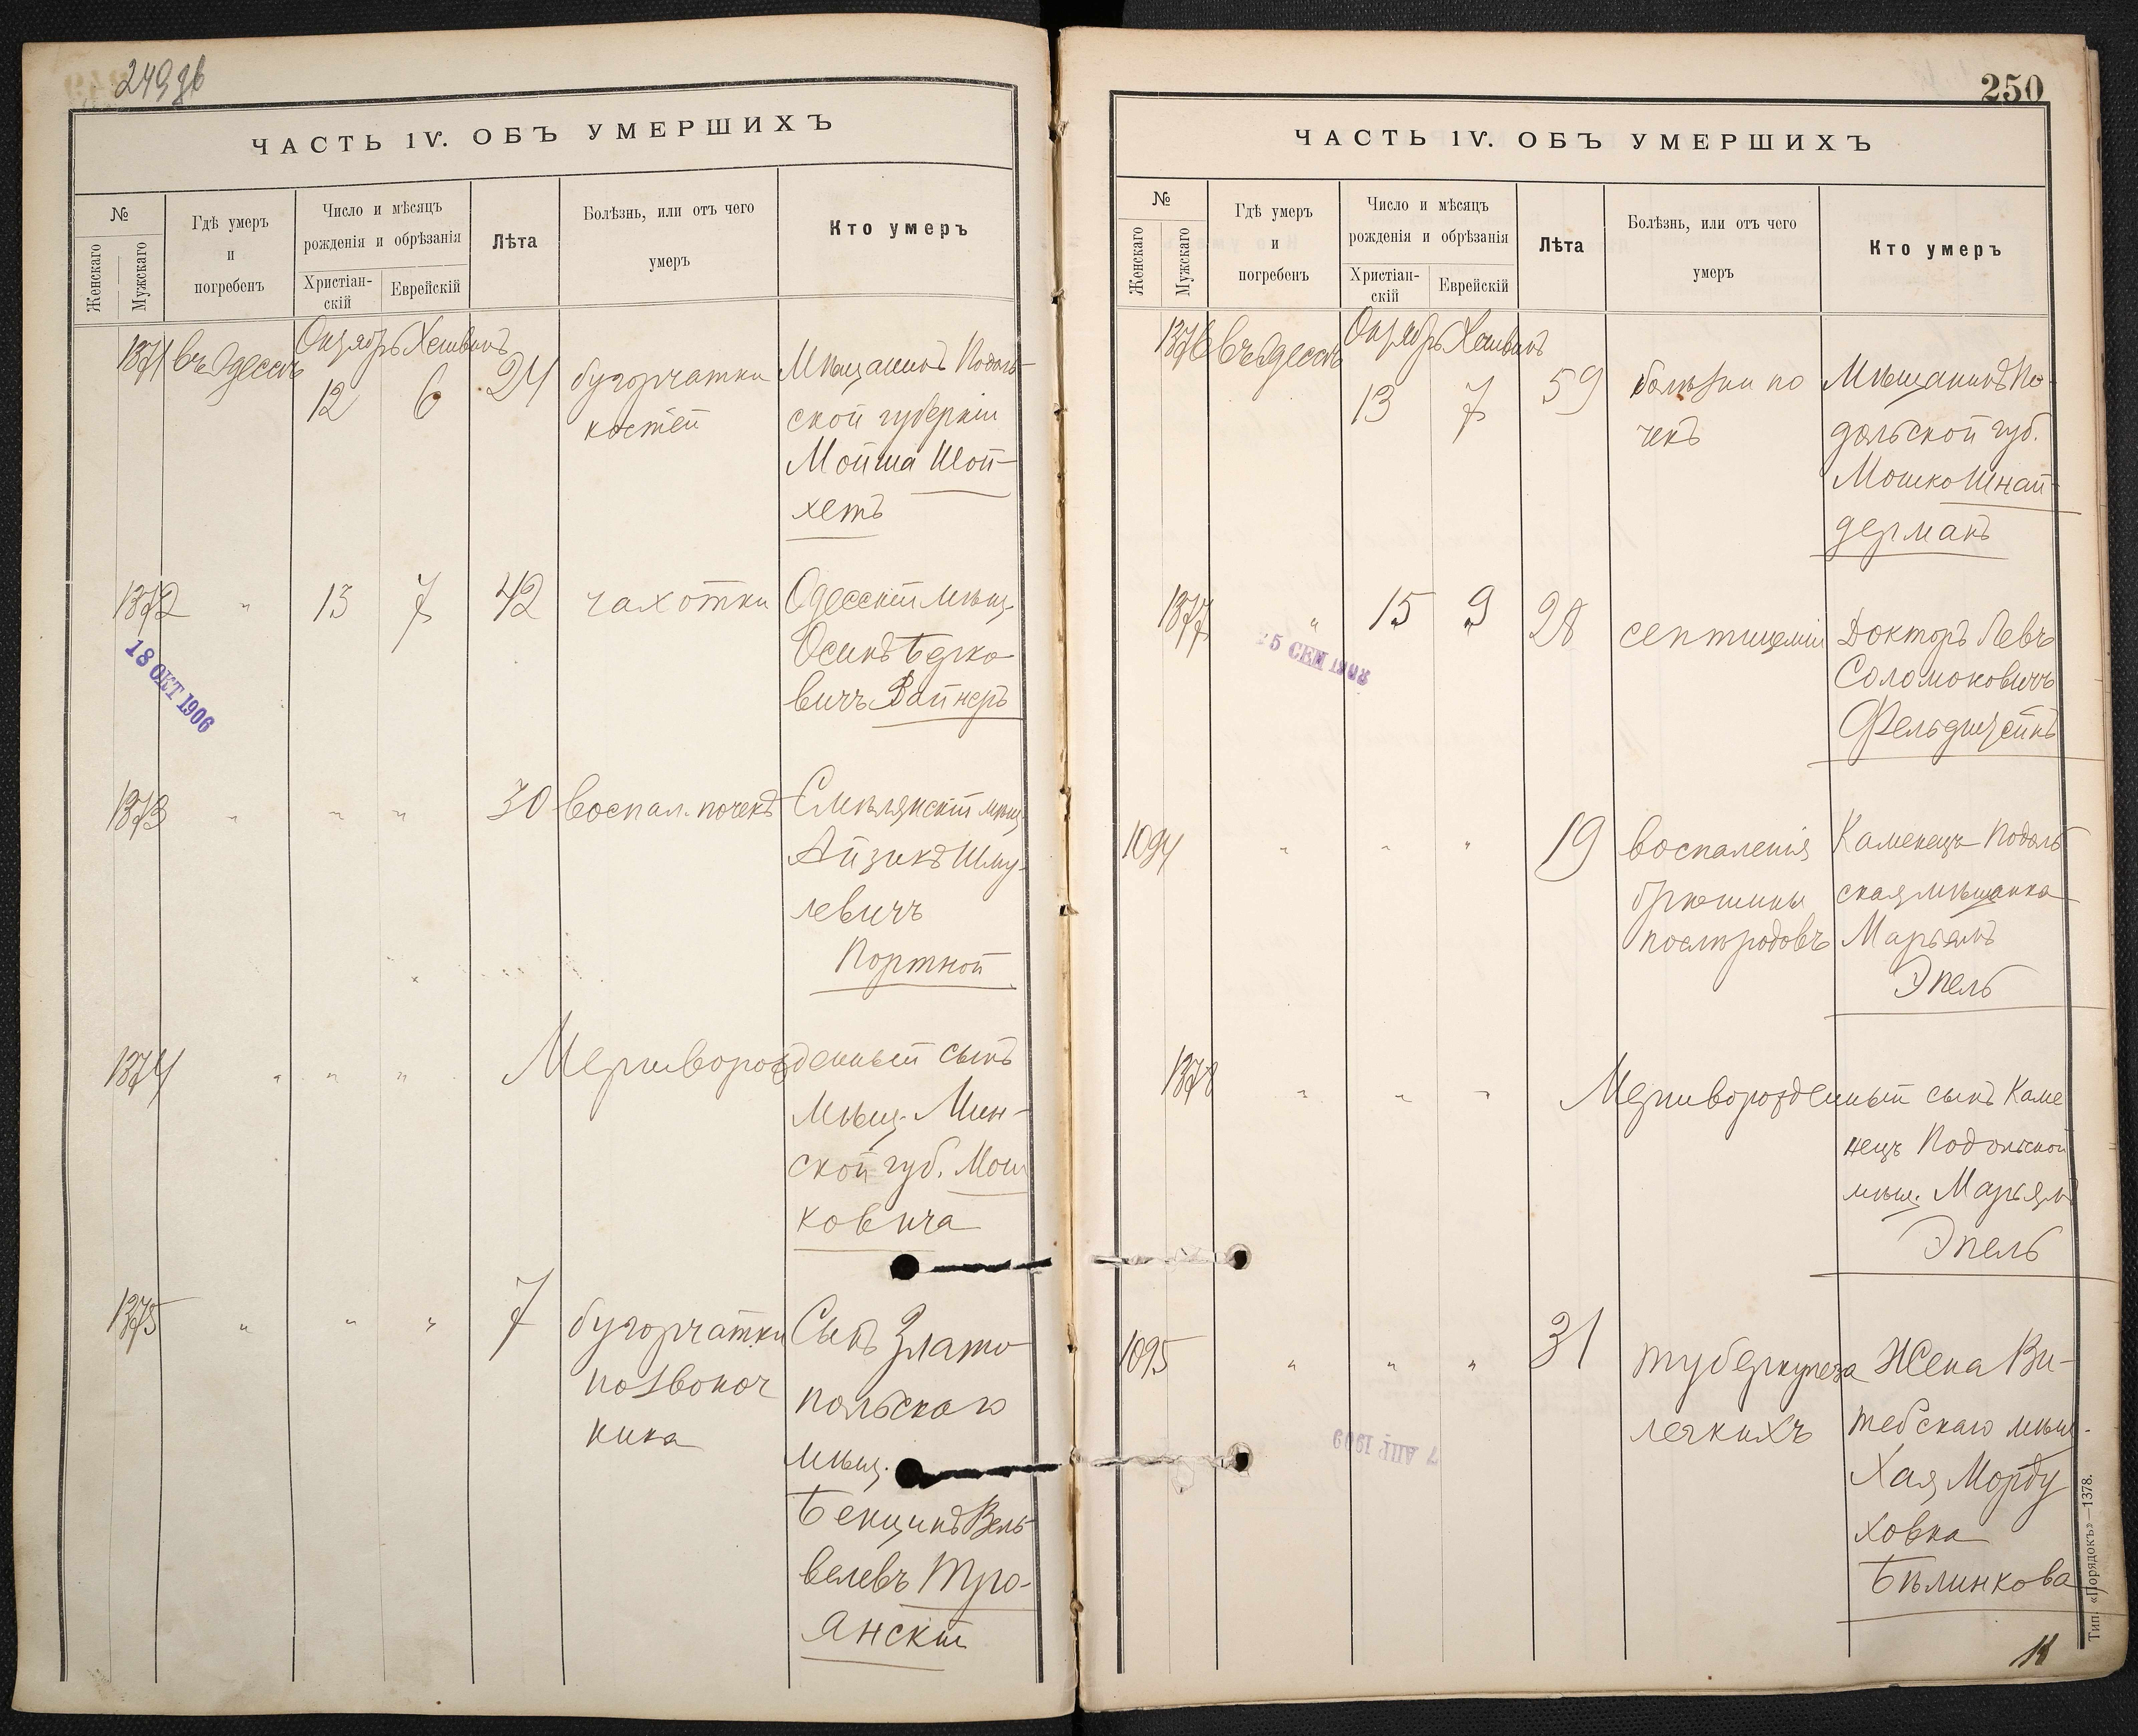 249 об
ЧАСТЬ IV. ОБЪ УМЕРШИХЪ
№
Женскаго
Мужскаго
Гдѣ умеръ
и
погребенъ
Число и мѣсяцъ
рожденія и обрѣзанія
Христіан-
скій
Еврейскій
Лѣта
Болѣзнь, или отъ чего
умеръ
Кто умеръ
1371 въ Одессѣ Октябрь Хешванъ
12 6 24 бугорчатки Мѣщанинъ Подоль-
костей ской губерніи
Мойша Шой-
хетъ
1372 " 13 7 42 чахотки Одесскій мѣщ.
18 ОКТ 1906
Осипъ Берко-
вичъ Вайнеръ
1373 " " " 30 воспал. почекъ Смѣлянскій мѣщ.
Айзикъ Шму-
левичъ
Портной
1374 " " " Мертворожденный сынъ
мѣщ. Мин-
ской губ. Мош
ковича
1375 " " " 7 бугорчатки Сынъ Злато
позвоноч польскаго
ника мѣщ.
Бенціинъ Вель
велевъ Тро-
янскій
250
ЧАСТЬ IV. ОБЪ УМЕРШИХЪ
№
Женскаго
Мужскаго
Гдѣ умеръ
и
погребенъ
Число и мѣсяцъ
рожденія и обрѣзанія
Христіан-
скій
Еврейскій
Лѣта
Болѣзнь, или отъ чего
умеръ
Кто умеръ
1376 въ Одессѣ Октябрь Хешванъ
13 7 59 болѣзни по Мѣщанинъ По-
чекъ дольской губ.
Мошко Шнай-
дерманъ
1377 " 15 9 28 септицеміи Докторъ Левъ
Соломоновичъ
Фельдштейнъ
1094 " " " 19 воспаленія Каменецъ-Подоль
брюшины ская мѣщанка
послѣ родовъ Марьямъ
Эпель
1378 " " " Мертворожденный сынъ Каме
нецъ Подольской
мѣщ. Марьямъ
Эпель
1095 " " " 31 туберкулеза Жена Ви-
легкихъ тебскаго мѣщ.
7 АПР 1909
Хая Морду
ховна
Бѣлинкова
Тип. «Порядокъ»—1378.